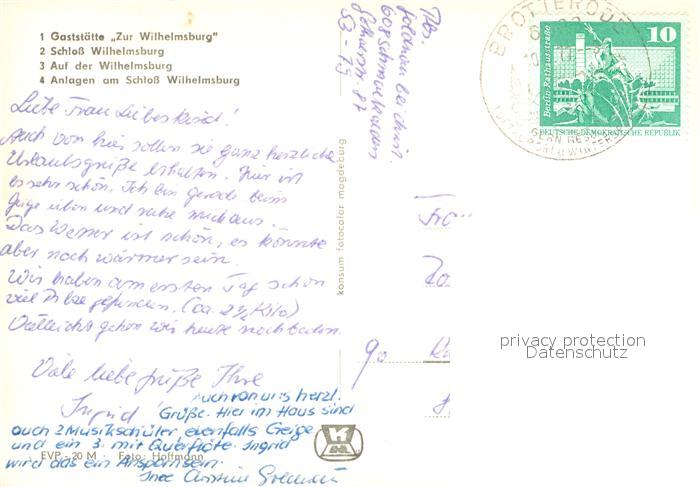 1 Gaststätte „Zur Wilhelmsburg"
2 Schloß Wilhelmsburg
3 Auf der Wilhelmsburg
4 Anlagen am Schloß Wilhelmsburg
Liebe Frau Liebeskind!
Auch von hier sollen sie ganz herzliche
Urlaubsgrüße erhalten. Hier ist
es sehr schön. Ich bin gerade beim
Geige üben und ruhe mich aus.
Das Wasser ist schön, es könnte
aber noch wärmer sein.
Wir haben am ersten Tag schon
viel Pilze gefunden. (ca. 2½ Kilo)
Vielleicht gehen wir heute noch baden.
Viele liebe Grüße Ihre
Ingrid
Auch von uns herzl.
Grüße. Hier im Haus sind
auch 2 Musikschüler ebenfalls Geige
und ein 3. mit Querflöte. Ingrid
wird das ein Ansporn sein.
Ihre Christine
EVP -20 M Foto: Hoffmann
konsum fotocolor magdeburg
Abs.
bei Christ.
608 Schmalkalden
87
53 - 75
BROTTERODE
Berlin-Rathausstraße
10
DEUTSCHE DEMOKRATISCHE REPUBLIK
Fra
90
privacy protection
Datenschutz